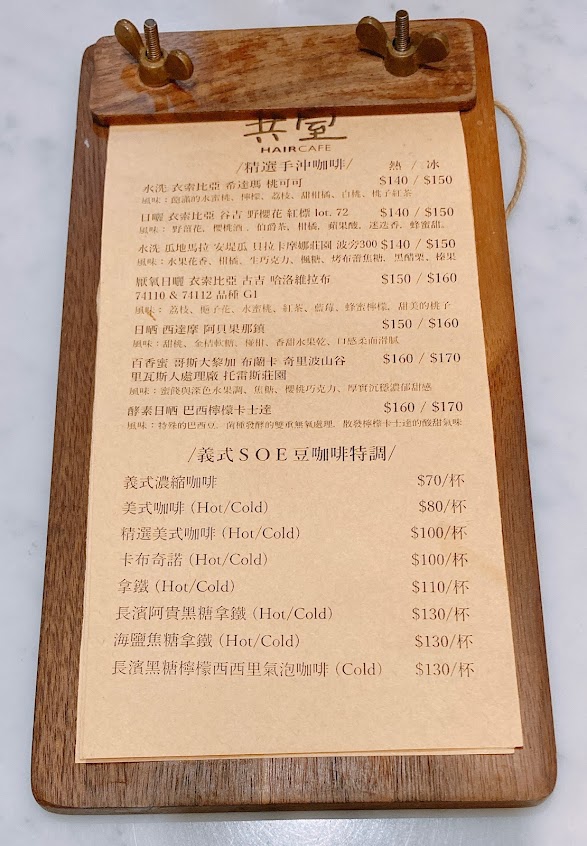 共屋
HAIRCAFE
/精選手沖咖啡/ 熱 / 冰
水洗 衣索比亞 希達瑪 桃可可 $140 / $150
風味：飽滿的水蜜桃、檸檬、荔枝、甜柑橘、白桃、桃子紅茶
日曬 衣索比亞 谷吉 野櫻花 紅標 lot. 72 $140 / $150
風味： 野薑花、櫻桃酒 、伯爵茶、柑橘、蘋果酸、迷迭香、蜂蜜甜。
水洗 瓜地馬拉 安堤瓜 貝拉卡摩娜莊園 波旁300 $140 / $150
風味：水果花香、柑橘、生巧克力、楓糖、烤布蕾焦糖、黑醋栗、榛果
厭氧日曬 衣索比亞 古吉 哈洛維拉布 $150 / $160
74110 & 74112 品種 G1
風味： 荔枝、梔子花、水蜜桃、紅茶、藍莓、蜂蜜檸檬、甜美的桃子
日晒 西達摩 阿貝果那鎮 $150 / $160
風味：甜桃、金桔軟糖、椪柑、香甜水果乾、口感柔而滑膩
百香蜜 哥斯大黎加 布蘭卡 奇里波山谷 $160 / $170
里瓦斯人處理廠 托雷斯莊園
風味：蜜餞與深色水果調、焦糖、櫻桃巧克力、厚實沉穩濃郁甜感
酵素日晒 巴西檸檬卡士達 $160 / $170
風味：特殊的巴西豆、菌種發酵的雙重無氧處理、散發檸檬卡士達的酸甜氣味
/義式ＳＯＥ豆咖啡特調/
義式濃縮咖啡 $70/杯
美式咖啡 (Hot/Cold) $80/杯
精選美式咖啡 (Hot/Cold) $100/杯
卡布奇諾 (Hot/Cold) $100/杯
拿鐵 (Hot/Cold) $110/杯
長濱阿貴黑糖拿鐵 (Hot/Cold) $130/杯
海鹽焦糖拿鐵 (Hot/Cold) $130/杯
長濱黑糖檸檬西西里氣泡咖啡 (Cold) $130/杯